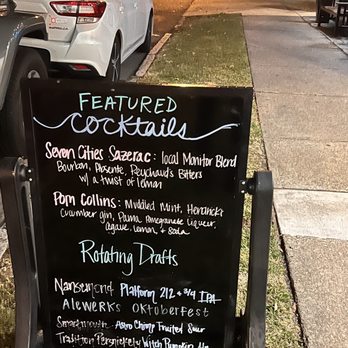 FEATURED
Cocktails
Seven Cities Sazerac: local Monitor Blend
Bourbon, Absente, Peychaud's Bitters
w/ a twist of lemon
Pom Collins: Muddled Mint, Hendricks
Cucumber gin, Pama Pomegranate Liqueur,
agave, Lemon, & Soda
Rotating Drafts
Nansemond Platform 212 + 3/4 IPA
Alewerks Oktoberfest
Smartmouth Astro Chimp Fruited Sour
Tradition Witch Pumpkin Ale